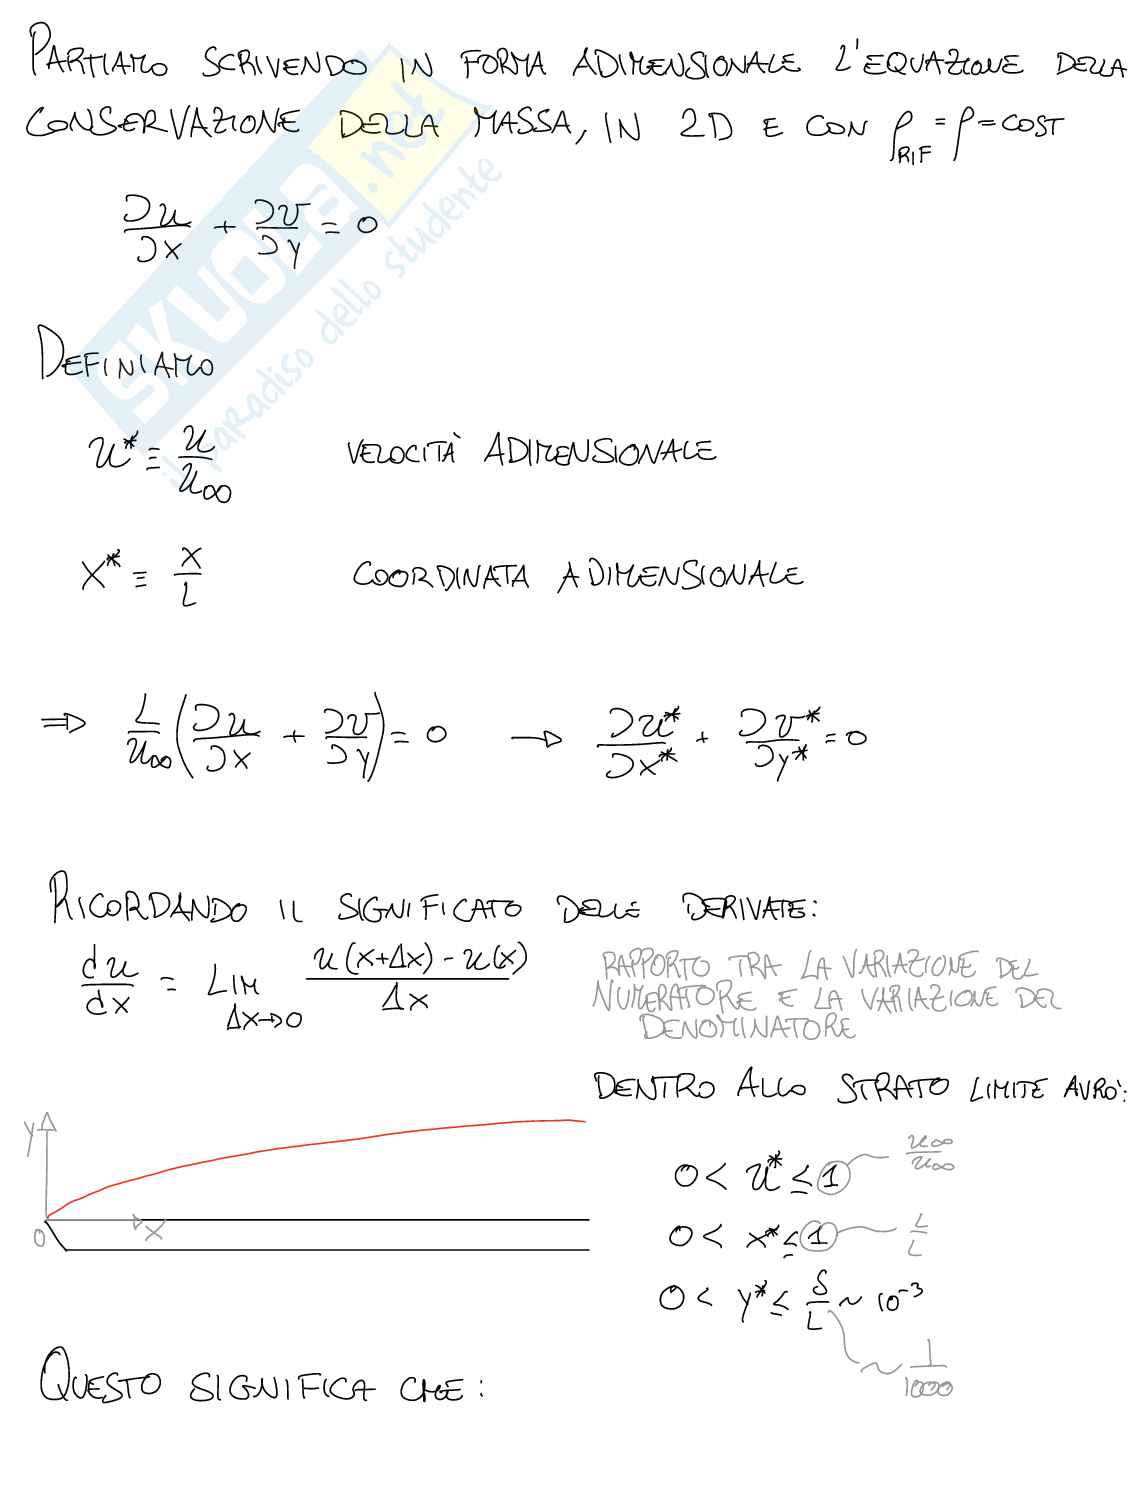 PARTIAMO SCRIVENDO IN FORMA ADIMENSIONALE L'EQUAZIONE DELLA
CONSERVAZIONE DELLA MASSA, IN 2D E CON ρ_RIF = ρ = COST
∂u/∂x + ∂v/∂y = 0
DEFINIAMO
u* ≡ u/u∞ VELOCITÀ ADIMENSIONALE
x* ≡ x/L COORDINATA ADIMENSIONALE
⇒ L/u∞ (∂u/∂x + ∂v/∂y) = 0 → ∂u*/∂x* + ∂v*/∂y* = 0
RICORDANDO IL SIGNIFICATO DELLE DERIVATE:
du/dx = LIM Δx→0 u(x+Δx) - u(x) / Δx
RAPPORTO TRA LA VARIAZIONE DEL
NUMERATORE E LA VARIAZIONE DEL
DENOMINATORE
DENTRO ALLO STRATO LIMITE AVRÒ:
y
0
x
0 < u* ≤ 1 u∞/u∞
0 < x* ≤ 1 L/L
0 < y* ≤ δ/L ~ 10⁻³
~ 1/1000
QUESTO SIGNIFICA CHE:
SKUOLA.net
il paradiso dello studente